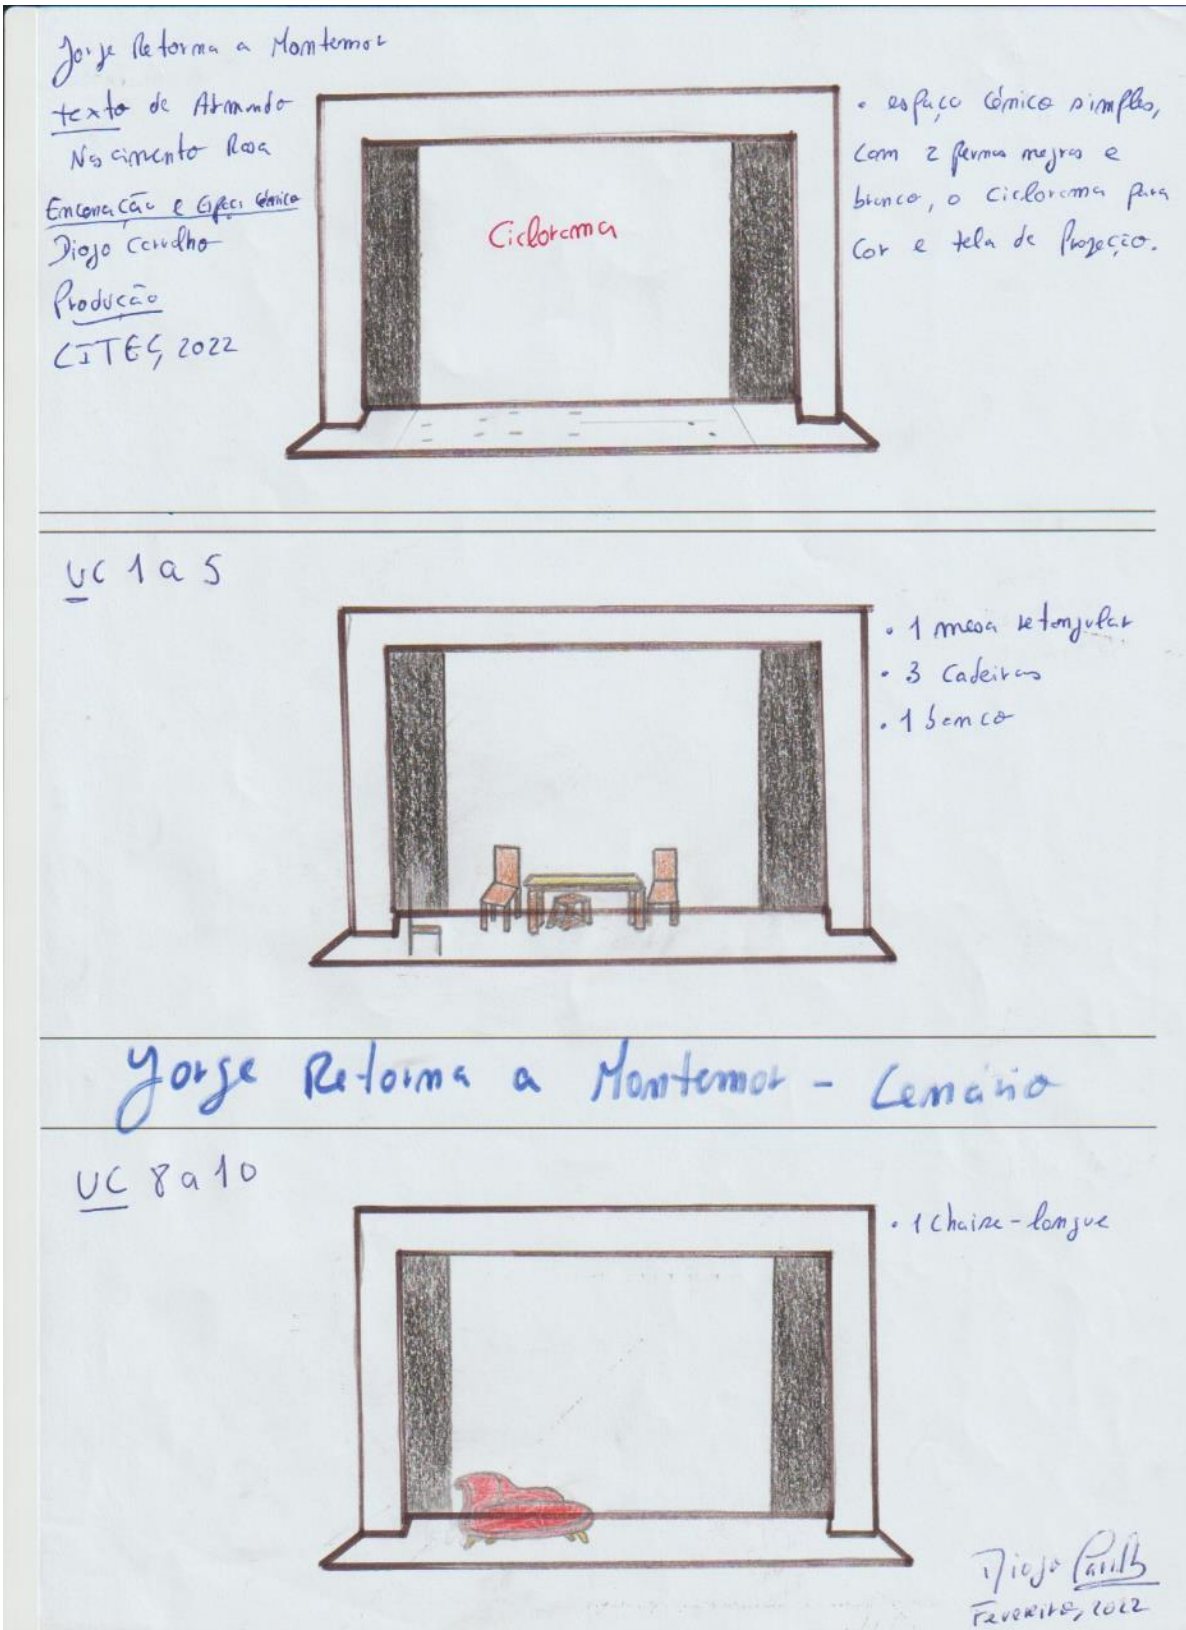 Jorge Retorna a Montemor
texto de Armando
Nascimento Rosa
Encenação e Espaço cénico
Diogo Carvalho
Produção
CITEC, 2022
Ciclorama
• espaço cénico simples,
com 2 pernas negras e
branco, o ciclorama para
cor e tela de Projeção.
UC 1 a 5
• 1 mesa retangular
• 3 Cadeiras
• 1 banco
Jorge Retorna a Montemor - Cenário
UC 8 a 10
• 1 Chaise-longue
Diogo Carvalho
Fevereiro, 2022